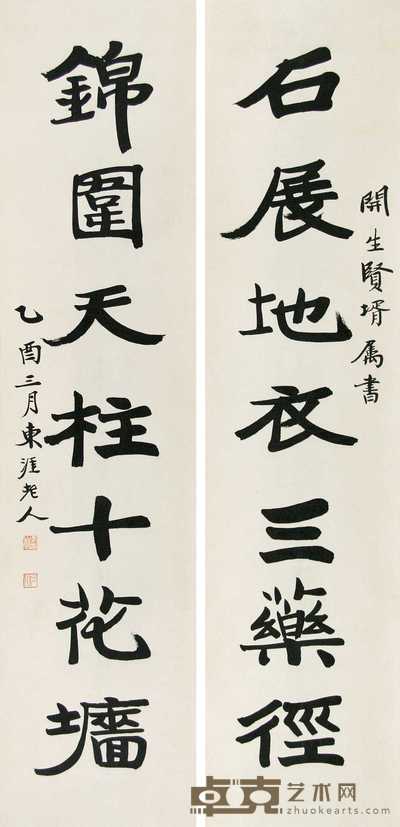 開生賢壻属書
石展地衣三藥徑
錦圍天柱十花墻
乙酉三月東漄老人
卓克艺术网
zhuokearts.com